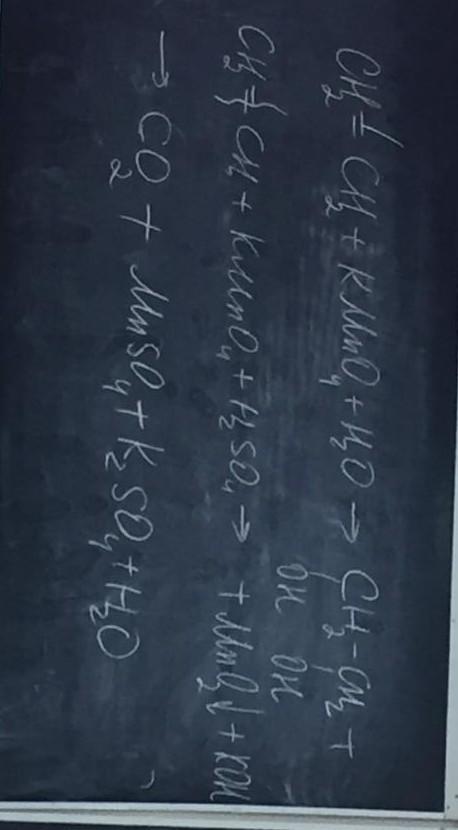 CH₂ = CH₂ + KMnO₄ + H₂O → CH₂ - CH₂ +
OH OH
+ MnO₂↓ + KOH
CH₂ = CH + KMnO₄ + H₂SO₄ →
→ CO₂ + MnSO₄ + K₂SO₄ + H₂O